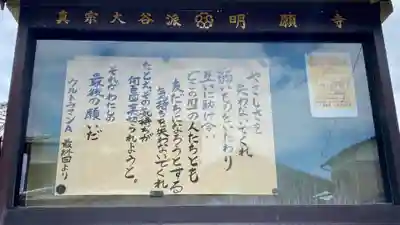 真宗大谷派 明願寺
やさしさを
失わないでくれ
弱いものをいたわり
互いに助け合い
どこの国の人たちとも
友だちになろうとする
気持ちを失わないでくれ
たとえその気持ちが
何百回裏切られようと。
それがわたしの
最後の願いだ
ウルトラマンA 最終回より